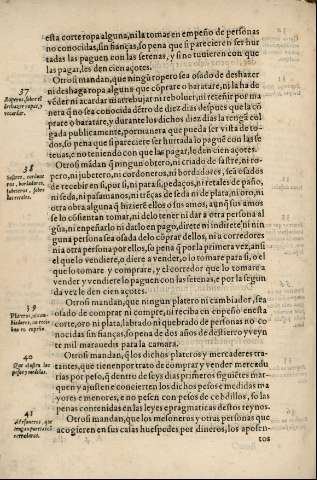 esta corte ropa alguna, ni la tomas en empeño de personas
no conocidas, sin fianças, so pena que si pareciere ser hur
tadas las paguen con las setenas, y si no tuuieren con que
las pagar, les den cien açotes.
37
Roperos, sobre el
deshazer ropas, y
recardar.
Otrosi mandan, que ningũ ropero sea osado de deshazer
ni deshaga ropa alguna que cõprare o baratare, ni la ha de
vẽder ni acardar ni arrebujar ni reboluer, ni teñir por ma
nera q̃ no sea conocida dẽtro de diez dias despues que la cõ
prare o baratare, y durante los dichos diez dias la tenga col
gada publicamente, por manera que pueda ser vista de to-
dos, so pena que si pareciere ser hurtada lo pague con las se
tenas, e no teniendo con que las pagar, le den cien açotes.
38
Sastre, cordone
ros, bordadores,
jubeteros, sobre
los retales.
Otrosi mãdan q̃ ningun obrero, ni criado de sastre, ni ro-
pero, ni jubetero, ni cordoneros, ni bordadores, sea osados
de recebir en si, por si, ni para si, pedaços, ni retales de paño,
ni seda, ni pasamanos, ni trẽças de seda ni de plata, ni oro, ni
otra obra alguna q̃ hizierẽ ellos o sus amos, aunq̃ sus amos
se lo cõsientan tomar, ni de lo tener ni dar a otra persona al
gũa, ni empeñarlo ni darlo en pago, direte ni indirete, ni nin
guna persona sea osada de lo cõprar dellos, ni a corredores
ni a otra persona por ellos, so pena q̃ por la primera vez, ansi
el que lo vendiere, o diere a vender, o lo tomare para si, o el
que lo tomare y comprare, y el corredor que lo tomare a
vender y vendierelo paguen con las setenas, e por la segun
da vez le den cien açotes.
39
Platero, ni cam-
biadores, no reci-
ban en empeño
Otrosi mandan, que ningun platero ni cambiador, sea
osado de comprar ni compre, ni reciba en empeño en esta
corte, oro ni plata, labrado ni quebrado de personas no co-
nocidas sin fianças, so pena de dos años de destierro y veyn
te mil marauedis para la camara.
40
Que ajusten los
pesos y medidas.
Otrosi mandan, q̃ los dichos plateros y mercaderes tra-
tantes, que tienen por trato de comprar y vender mercadu
rias por peso, q̃ dentro de seys dias primeros siguiẽtes mar-
quen y ajusten e concierten los dichos pesos e medidas ma
yores e menores, e no pesen con pesos de cebdillos, so las
penas contenidas en las leyes e pragmaticas destos reynos.
41
Mesoneros, que
tengan puertas cõ
cerraduras.
Otrosi mandan, que los mesoneros y otras personas que
acogieren en sus casas huespedes por dineros, los aposen-
tos